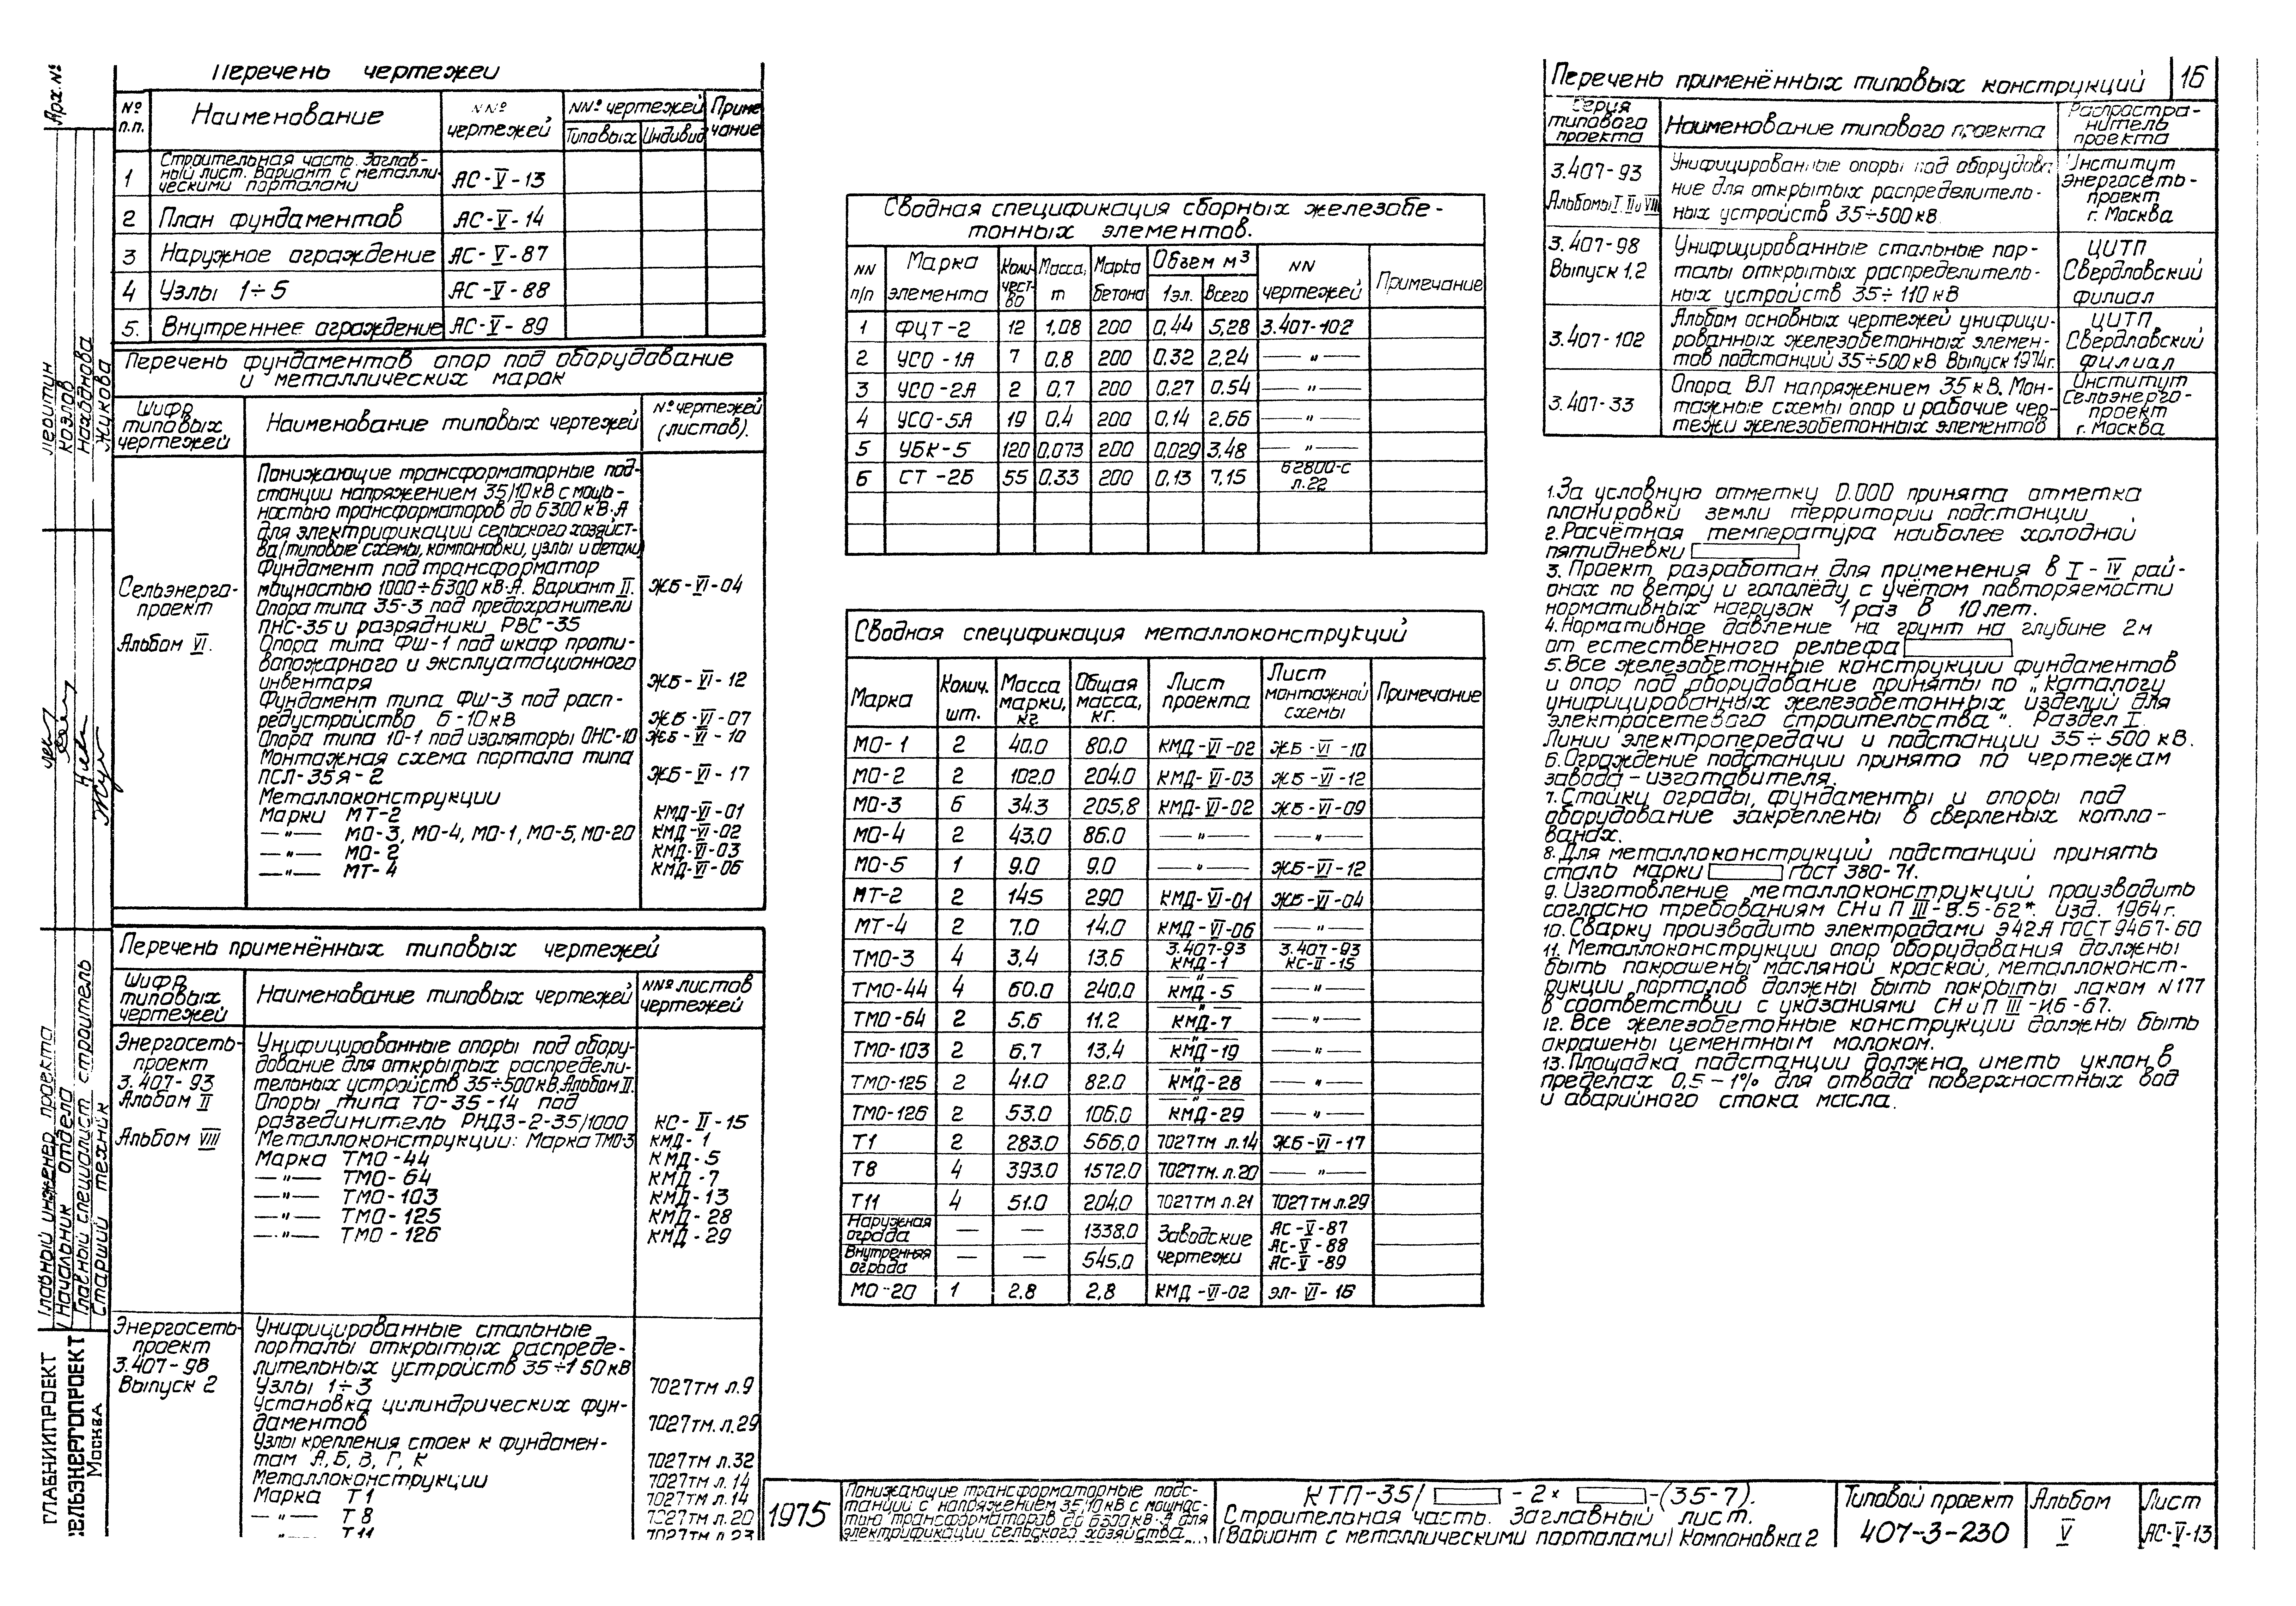 Перечень чертежей
№ п.п. Наименование NN° чертежей NN° чертежей Примечание
Типовых Индивид
1 Строительная часть. Заглав-
ный лист. Вариант с металли-
ческими порталами АС-V-13
2 План фундаментов АС-V-14
3 Наружное ограждение АС-V-87
4 Узлы 1÷5 АС-V-88
5. Внутреннее ограждение АС-V-89
Перечень фундаментов опор под оборудование
и металлических марок
Шифр типовых чертежей Наименование типовых чертежей N° чертежей (листов).
Сельэнерго-
проект
Альбом VI.
Понижающие трансформаторные под-
станции напряжением 35/10кВ с мощь-
ностью трансформаторов до 6300 кВ·А
для электрификации сельского хозяйст-
ва (типовые схемы, компоновки, узлы и детали)
Фундамент под трансформатор
мощностью 1000÷6300 кВ·А. Вариант II. ЖБ-VI-04
Опора типа 35-3 под предохранители
ПНС-35 и разрядники РВС-35
Опора типа ФШ-1 под шкаф проти-
вопожарного и эксплуатационного
инвентаря ЖБ-VI-12
Фундамент типа ФШ-3 под расп-
редустройство 6-10кВ ЖБ-VI-07
Опора типа 10-1 под изоляторы ОНС-10 ЖБ-VI-10
Монтажная схема портала типа
ПСЛ-35Я-2 ЖБ-VI-17
Металлоконструкции
Марки МТ-2 КМД-VI-01
—"— МО-3, МО-4, МО-1, МО-5, МО-20 КМД-VI-02
—"— МО-2 КМД-VI-03
—"— МТ-4 КМД-VI-06
Перечень применённых типовых чертежей
Шифр типовых чертежей Наименование типовых чертежей NN° листов чертежей
Энергосеть-
проект
3.407-93
Альбом II
Альбом VIII
Унифицированные опоры под обору-
дование для открытых распредели-
тельных устройств 35÷500кВ. Альбом II.
Опоры типа ТО-35-14 под
разъединитель РНДЗ-2-35/1000 КС-II-15
Металлоконструкции: Марка ТМО-3 КМД-1
Марка ТМО-44 КМД-5
—"— ТМО-64 КМД-7
—"— ТМО-103 КМД-13
—"— ТМО-125 КМД-28
—"— ТМО-126 КМД-29
Энергосеть-
проект
3.407-98
Выпуск 2
Унифицированные стальные
порталы открытых распреде-
лительных устройств 35÷150кВ
Узлы 1÷3 7027тм л.9
Установка цилиндрических фун-
даментов 7027тм. л.29
Узлы крепления стоек к фундамен-
там А, Б, В, Г, К 7027тм л.32
Металлоконструкции 7027тм л.14
Марка Т1 7027тм л.14
—"— Т8 7027тм л.20
—"— Т11 7027тм л.23
Сводная спецификация сборных железобе-
тонных элементов.
NN п/п Марка элемента Количество Масса, т Марка бетона Объем м³ NN чертежей Примечание
1эл. Всего
1 ФЦТ-2 12 1,08 200 0,44 5,28 3.407-102
2 УСО-1А 7 0,8 200 0.32 2,24 —"—
3 УСО-2А 2 0,7 200 0,27 0,54 —"—
4 УСО-5А 19 0,4 200 0,14 2,66 —"—
5 УБК-5 120 0,073 200 0,029 3,48 —"—
6 СТ-2Б 55 0.33 200 0,13 7,15 62800-с л.22
Сводная спецификация металлоконструкций
Марка Колич. шт. Масса марки, кг Общая масса, кг. Лист проекта Лист монтажной схемы Примечание
МО-1 2 40.0 80.0 КМД-VI-02 ЖБ-VI-10
МО-2 2 102.0 204.0 КМД-VI-03 ЖБ-VI-12
МО-3 6 34.3 205,8 КМД-VI-02 ЖБ-VI-09
МО-4 2 43.0 86.0 —"— —"—
МО-5 1 9.0 9.0 —"— ЖБ-VI-12
МТ-2 2 145 290 КМД-VI-01 ЖБ-VI-04
МТ-4 2 7.0 14.0 КМД-VI-06 —"—
ТМО-3 4 3,4 13,6 3.407-93 КМД-1 3.407-93 КС-II-15
ТМО-44 4 60.0 240.0 —"— КМД-5 —"—
ТМО-64 2 5,6 11.2 —"— КМД-7 —"—
ТМО-103 2 6,7 13,4 —"— КМД-19 —"—
ТМО-125 2 41.0 82.0 —"— КМД-28 —"—
ТМО-126 2 53.0 106.0 —"— КМД-29 —"—
Т1 2 283.0 566,0 7027тм л.14 ЖБ-VI-17
Т8 4 393.0 1572.0 7027тм. л.20 —"—
Т11 4 51.0 204.0 7027тм л.21 7027тм л.29
Наружная ограда — — 1338.0 Заводские чертежи АС-V-87
АС-V-88
Внутренняя ограда — — 545.0 АС-V-89
МО-20 1 2.8 2,8 КМД-VI-02 ЭЛ-VI-16
Перечень применённых типовых конструкций 16
Серия типового проекта Наименование типового проекта Распространитель проекта
3.407-93
Альбомы I. II и VIII
Унифицированные опоры под оборудова-
ние для открытых распределитель-
ных устройств 35÷500 кВ.
Институт
Энергосеть-
проект
г. Москва
3.407-98
Выпуск 1,2
Унифицированные стальные пор-
талы открытых распределитель-
ных устройств 35÷110 кВ
ЦИТП
Свердловский
филиал
3.407-102
Альбом основных чертежей унифици-
рованных железобетонных элемен-
тов подстанций 35÷500 кВ Выпуск 1974г.
ЦИТП
Свердловский
филиал
3.407-33
Опора ВЛ напряжением 35 кВ. Мон-
тажные схемы опор и рабочие чер-
тежи железобетонных элементов
Институт
Сельэнерго-
проект
г. Москва
1.За условную отметку 0.000 принята отметка
планировки земли территории подстанции
2.Расчётная температура наиболее холодной
пятидневки
3. Проект разработан для применения в I - IV рай-
онах по ветру и гололёду с учётом повторяемости
нормативных нагрузок 1 раз в 10 лет.
4.Нормативное давление на грунт на глубине 2м
от естественного рельефа
5.Все железобетонные конструкции фундаментов
и опор под оборудование приняты по „Каталогу
унифицированных железобетонных изделий для
электросетевого строительства". Раздел I.
Линии электропередачи и подстанции 35÷500 кВ.
6.Ограждение подстанции принято по чертежам
завода-изготовителя.
7.Стойки ограды, фундаменты и опоры под
оборудование закреплены в сверленых котло-
ванах.
8.Для металлоконструкций подстанций принять
сталь марки ГОСТ 380-71.
9.Изготовление металлоконструкций производить
согласно требованиям СНиП III-В.5-62*. изд. 1964г.
10.Сварку производить электродами Э42А ГОСТ 9467-60
11.Металлоконструкции опор оборудования должны
быть покрашены масляной краской, металлоконст-
рукции порталов должны быть покрыты лаком N177
в соответствии с указаниями СНиП III-И.6-67.
12. Все железобетонные конструкции должны быть
окрашены цементным молоком.
13.Площадка подстанции должна иметь уклон в
пределах 0,5-1% для отвода поверхностных вод
и аварийного стока масла.
1975
Понижающие трансформаторные подс-
танции с напряжением 35/10кВ с мощнос-
тью трансформаторов до 6300 кВ·А для
электрификации сельского хозяйства
КТП-35/ - 2× -(35-7).
Строительная часть. Заглавный лист.
(Вариант с металлическими порталами) Компоновка 2
Типовой проект
407-3-230
Альбом
V
Лист
АС-V-13
Арх.№
Козлов
Находнова
Жукова
Главный инженер проекта
Начальник отдела
Главный специалист строитель
Старший техник
ГЛАВНИИПРОЕКТ
СЕЛЬЭНЕРГОПРОЕКТ
Москва